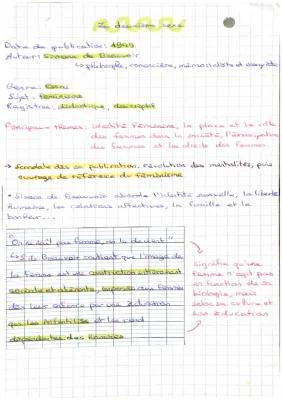 Le deuxième sexe
Date de publication: 1949
Auteur: Simone de Beauvoir
↳ philosophe, romancière, mémorialiste et essayiste
Genre: Essai
Sujet: féminisme
Registres: didactique, descriptif
Principaux thèmes: identité féminine, la place et le rôle
des femmes dans la société, l'émancipation
des femmes et les droits des femmes
→ Scandale dès sa publication, révolution des mentalités, puis
ouvrage de référence du féminisme
• Simone de Beauvoir aborde l'identité sexuelle, la liberté
humaine, les relations affectives, la famille et le
bonheur...
"On ne naît pas femme, on le devient"
↳ S. de Beauvoir soutient que l'image de
la femme est une construction
sociale et aliénante, imposée aux femmes
dès leur enfance par une éducation
qui les infantilise et les rend
dépendantes des hommes
Signifie qu'une
femme n'agit pas
en fonction de sa
biologie, mais
selon sa culture et
son éducation